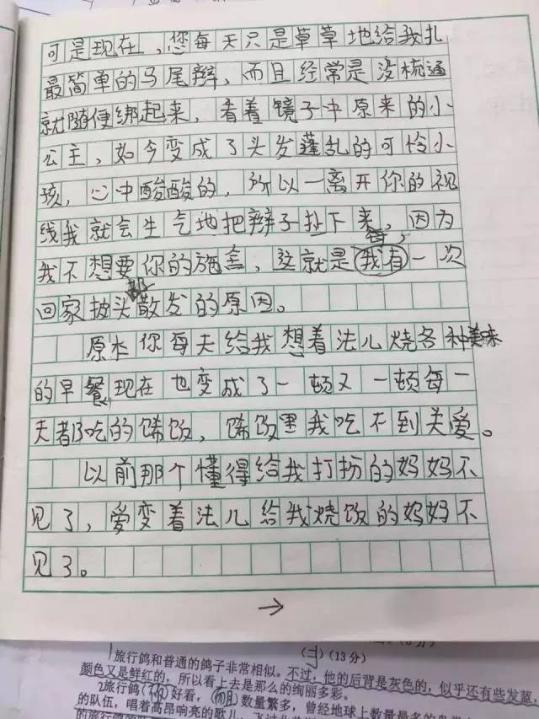 可是现在，您每天只是草草地给我扎
最简单的马尾辫，而且经常是没梳通
就随便绑起来，看着镜子中原来的小
公主，如今变成了头发蓬乱的可怜小
孩，心中酸酸的，所以一离开你的视
线我就会生气地把辫子扯下来，因为
我不想要你的施舍，这就是我有每一次
回家都披头散发的原因。
原本你每天给我想着法儿烧各种美味
的早餐现在也变成了一顿又一顿每一
天都吃的馊饭，馊饭里我吃不到关爱。
以前那个懂得给我打扮的妈妈不
见了，爱变着法儿给我烧饭的妈妈不
见了。
→
(13分)
1旅行鸽和普通的鸽子非常相似。不过，他的后背是灰色的，似乎还有些发蓝，
颜色又是鲜红的，所以看上去是那么的绚丽多彩。
2旅行鸽(不仅)好看，(而且)数量繁多，曾经地球上数量最多的
的队伍，唱着高昂响亮的歌儿，